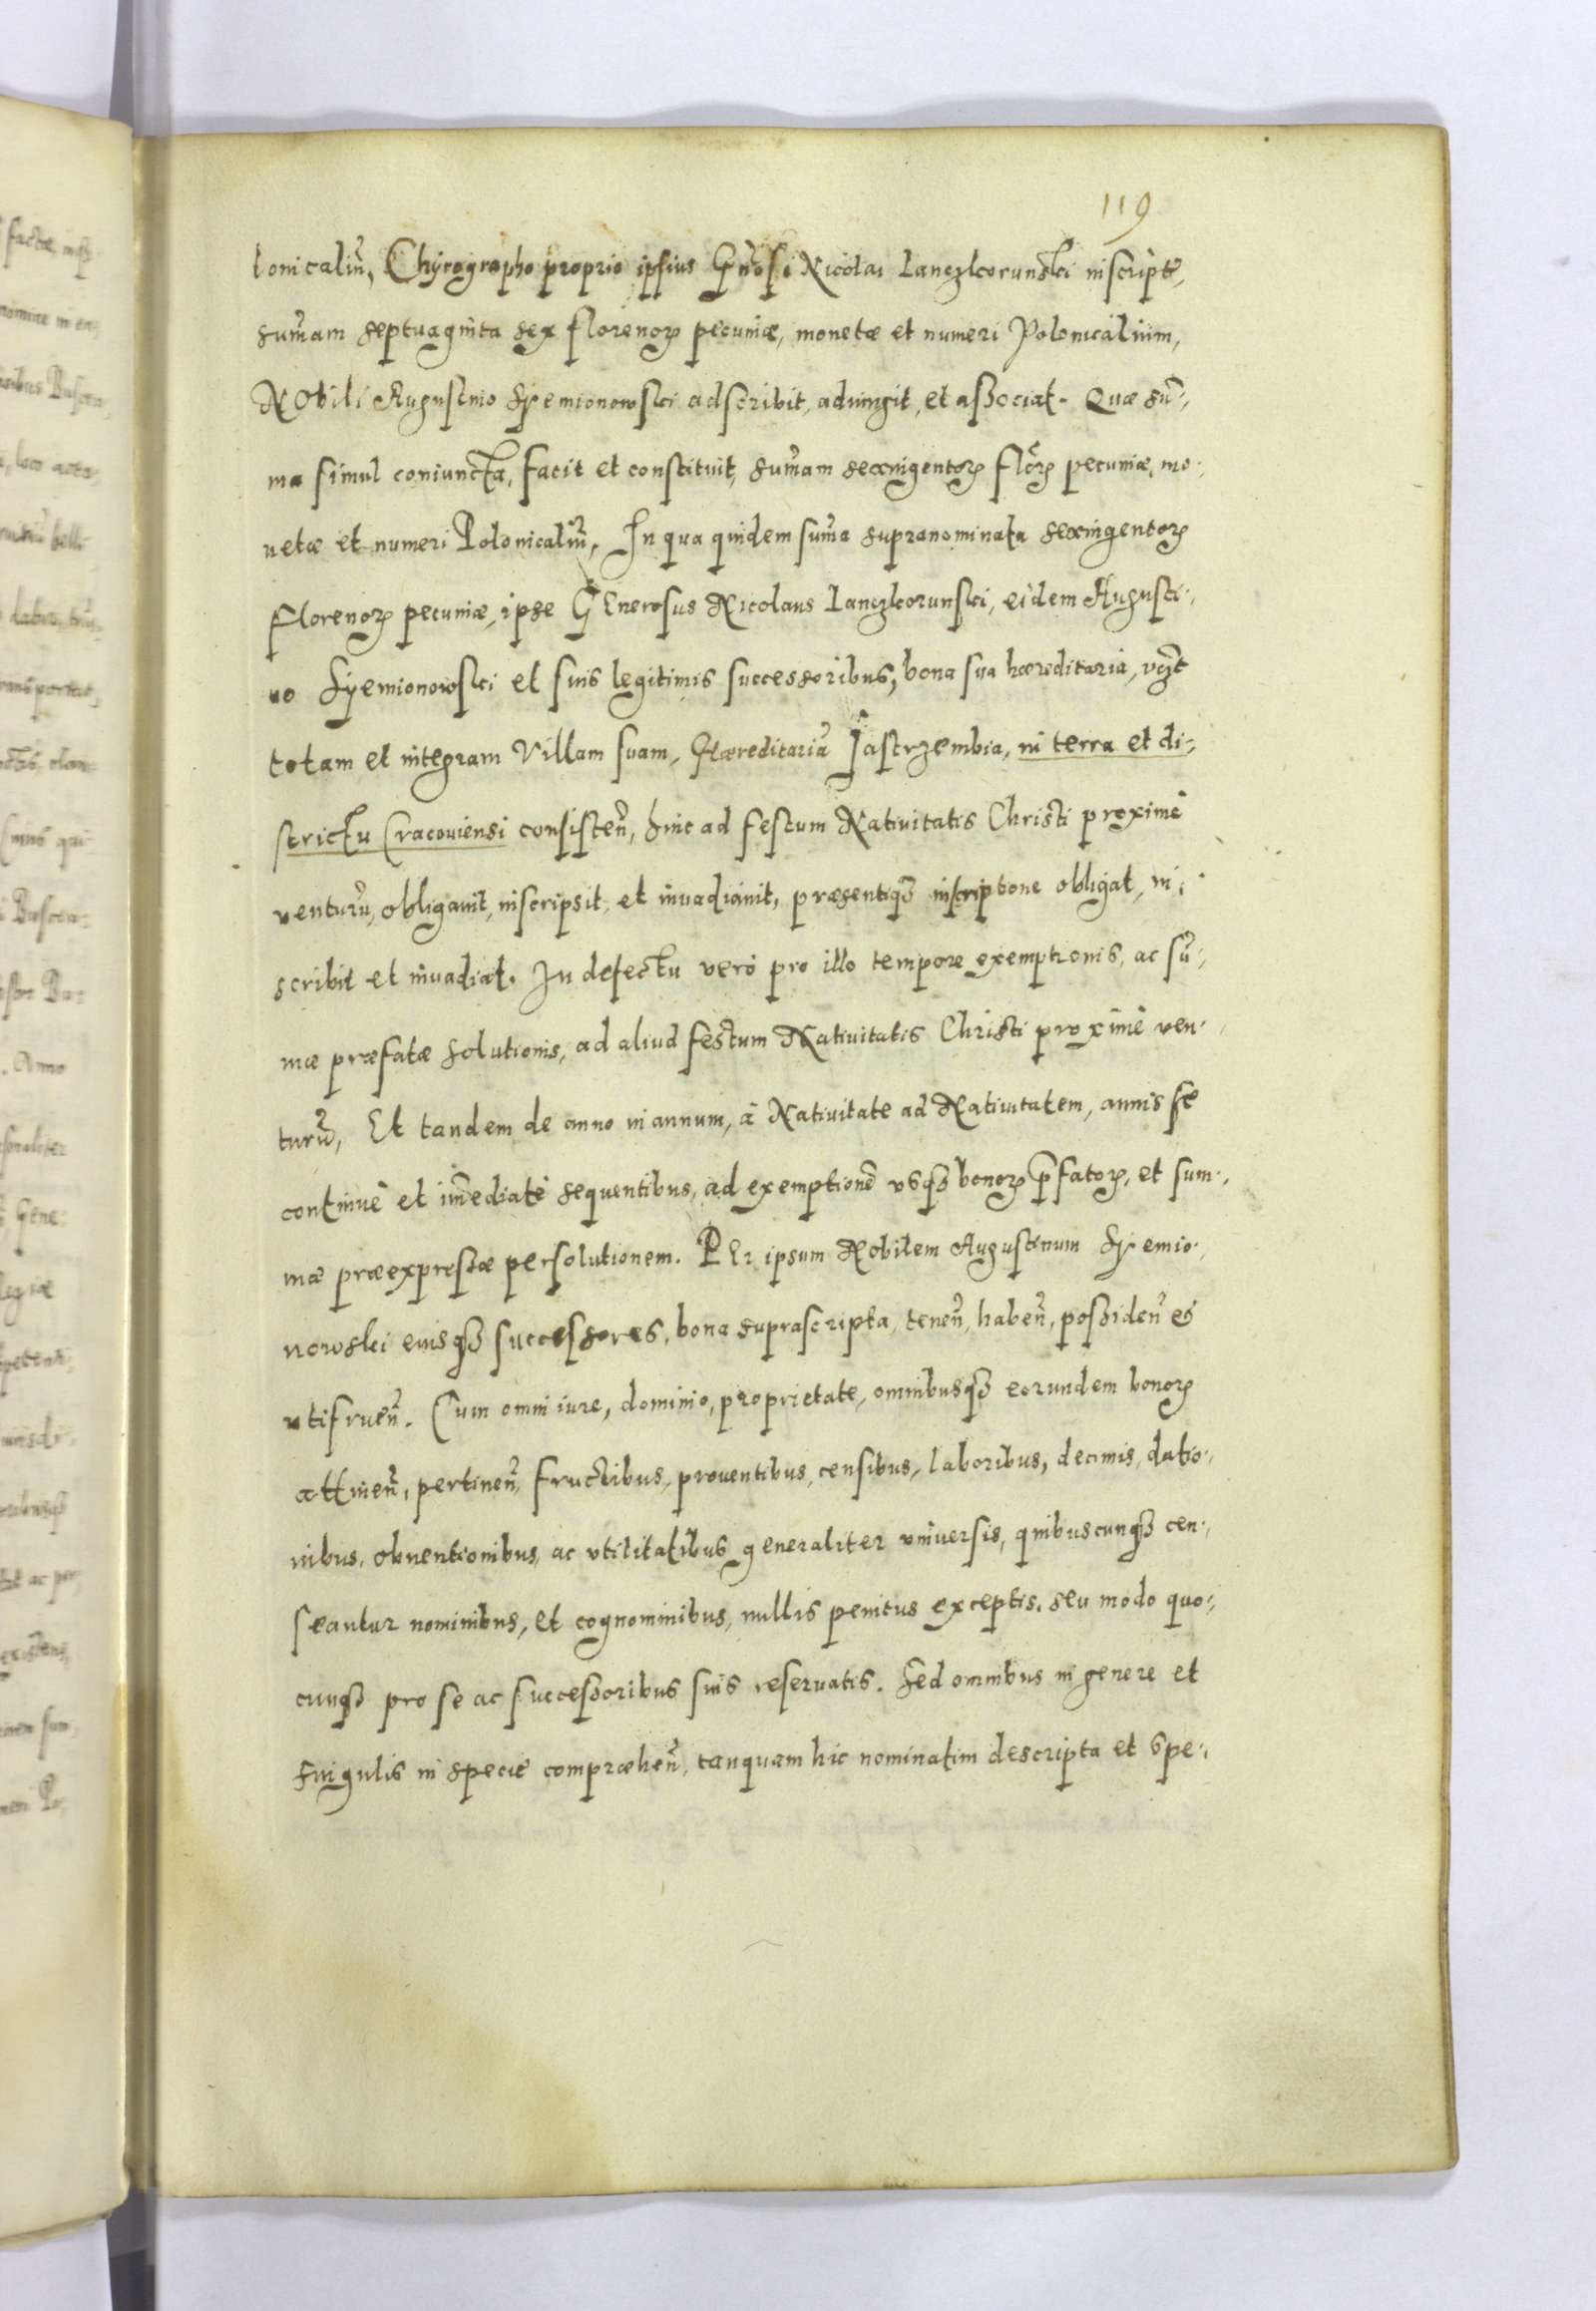 119
lonicaliũ, Chyrographo proprio ipsius Gñosi Nicolai Lanczkorunski inscriptæ,
sum̃am septuaginta sex florenoꝝ pecuniæ, monetæ et numeri Polonicalium,
NObili Augustino Syemionowski adscribit, adiungit, et associat. Quæ sũ-
ma simul coniuncta, facit et constituit, sum̃am sexingentoꝝ flõꝝ pecuniæ, mo-
netæ et numeri Polonicaliũ. In qua quidem sum̃a supranominata sexingentoꝝ
Florenoꝝ pecuniæ, ipse GEnerosus Nicolaus Lanczkorunski, eidem Augusti-
no Syemionowski et suis legitimis successoribus, bona sua hæreditaria, vĩꝫt
totam et integram Villam suam, Hæreditariã Jastrzembia, in terra et di-
strictu Cracouiensi consisteñ, hinc ad festum Natiuitatis Christi proximè
venturũ, obligauit, inscripsit, et inuadiauit, præsentiqꝫ inscriptione obligat, in-
scribit et inuadiat. In defectu verò pro illo tempore exemptionis, ac sũ-
mæ præfatæ solutionis, ad aliud festum Natiuitatis Christi proximè ven-
turũ, Et tandem de anno in annum, à Natiuitate ad Natiuitatem, annis se
continuè et im̃ediatè sequentibus, ad exemptionẽ vsqꝫ bonoꝝ p̃fatoꝝ, et sum-
mæ præexpressæ persolutionem. PEr ipsum Nobilem Augustinum Syemio-
nowski eiusqꝫ successores, bona suprascripta, teneñ, habeñ, possideñ et
vtifrueñ. Cum omni iure, dominio, proprietate, omnibusqꝫ eorundem bonoꝝ
attineñ, pertineñ, fructibus, prouentibus, censibus, laboribus, decimis, datio-
nibus, obuentionibus, ac vtilitatibus generaliter vniuersis, quibuscunqꝫ cen-
seantur nominibus, et cognominibus, nullis penitus exceptis, seu modo quo-
cunqꝫ pro se ac successoribus suis reseruatis. Sed omnibus in genere et
singulis in specie compræheñ, tanquam hic nominatim descripta et spe-